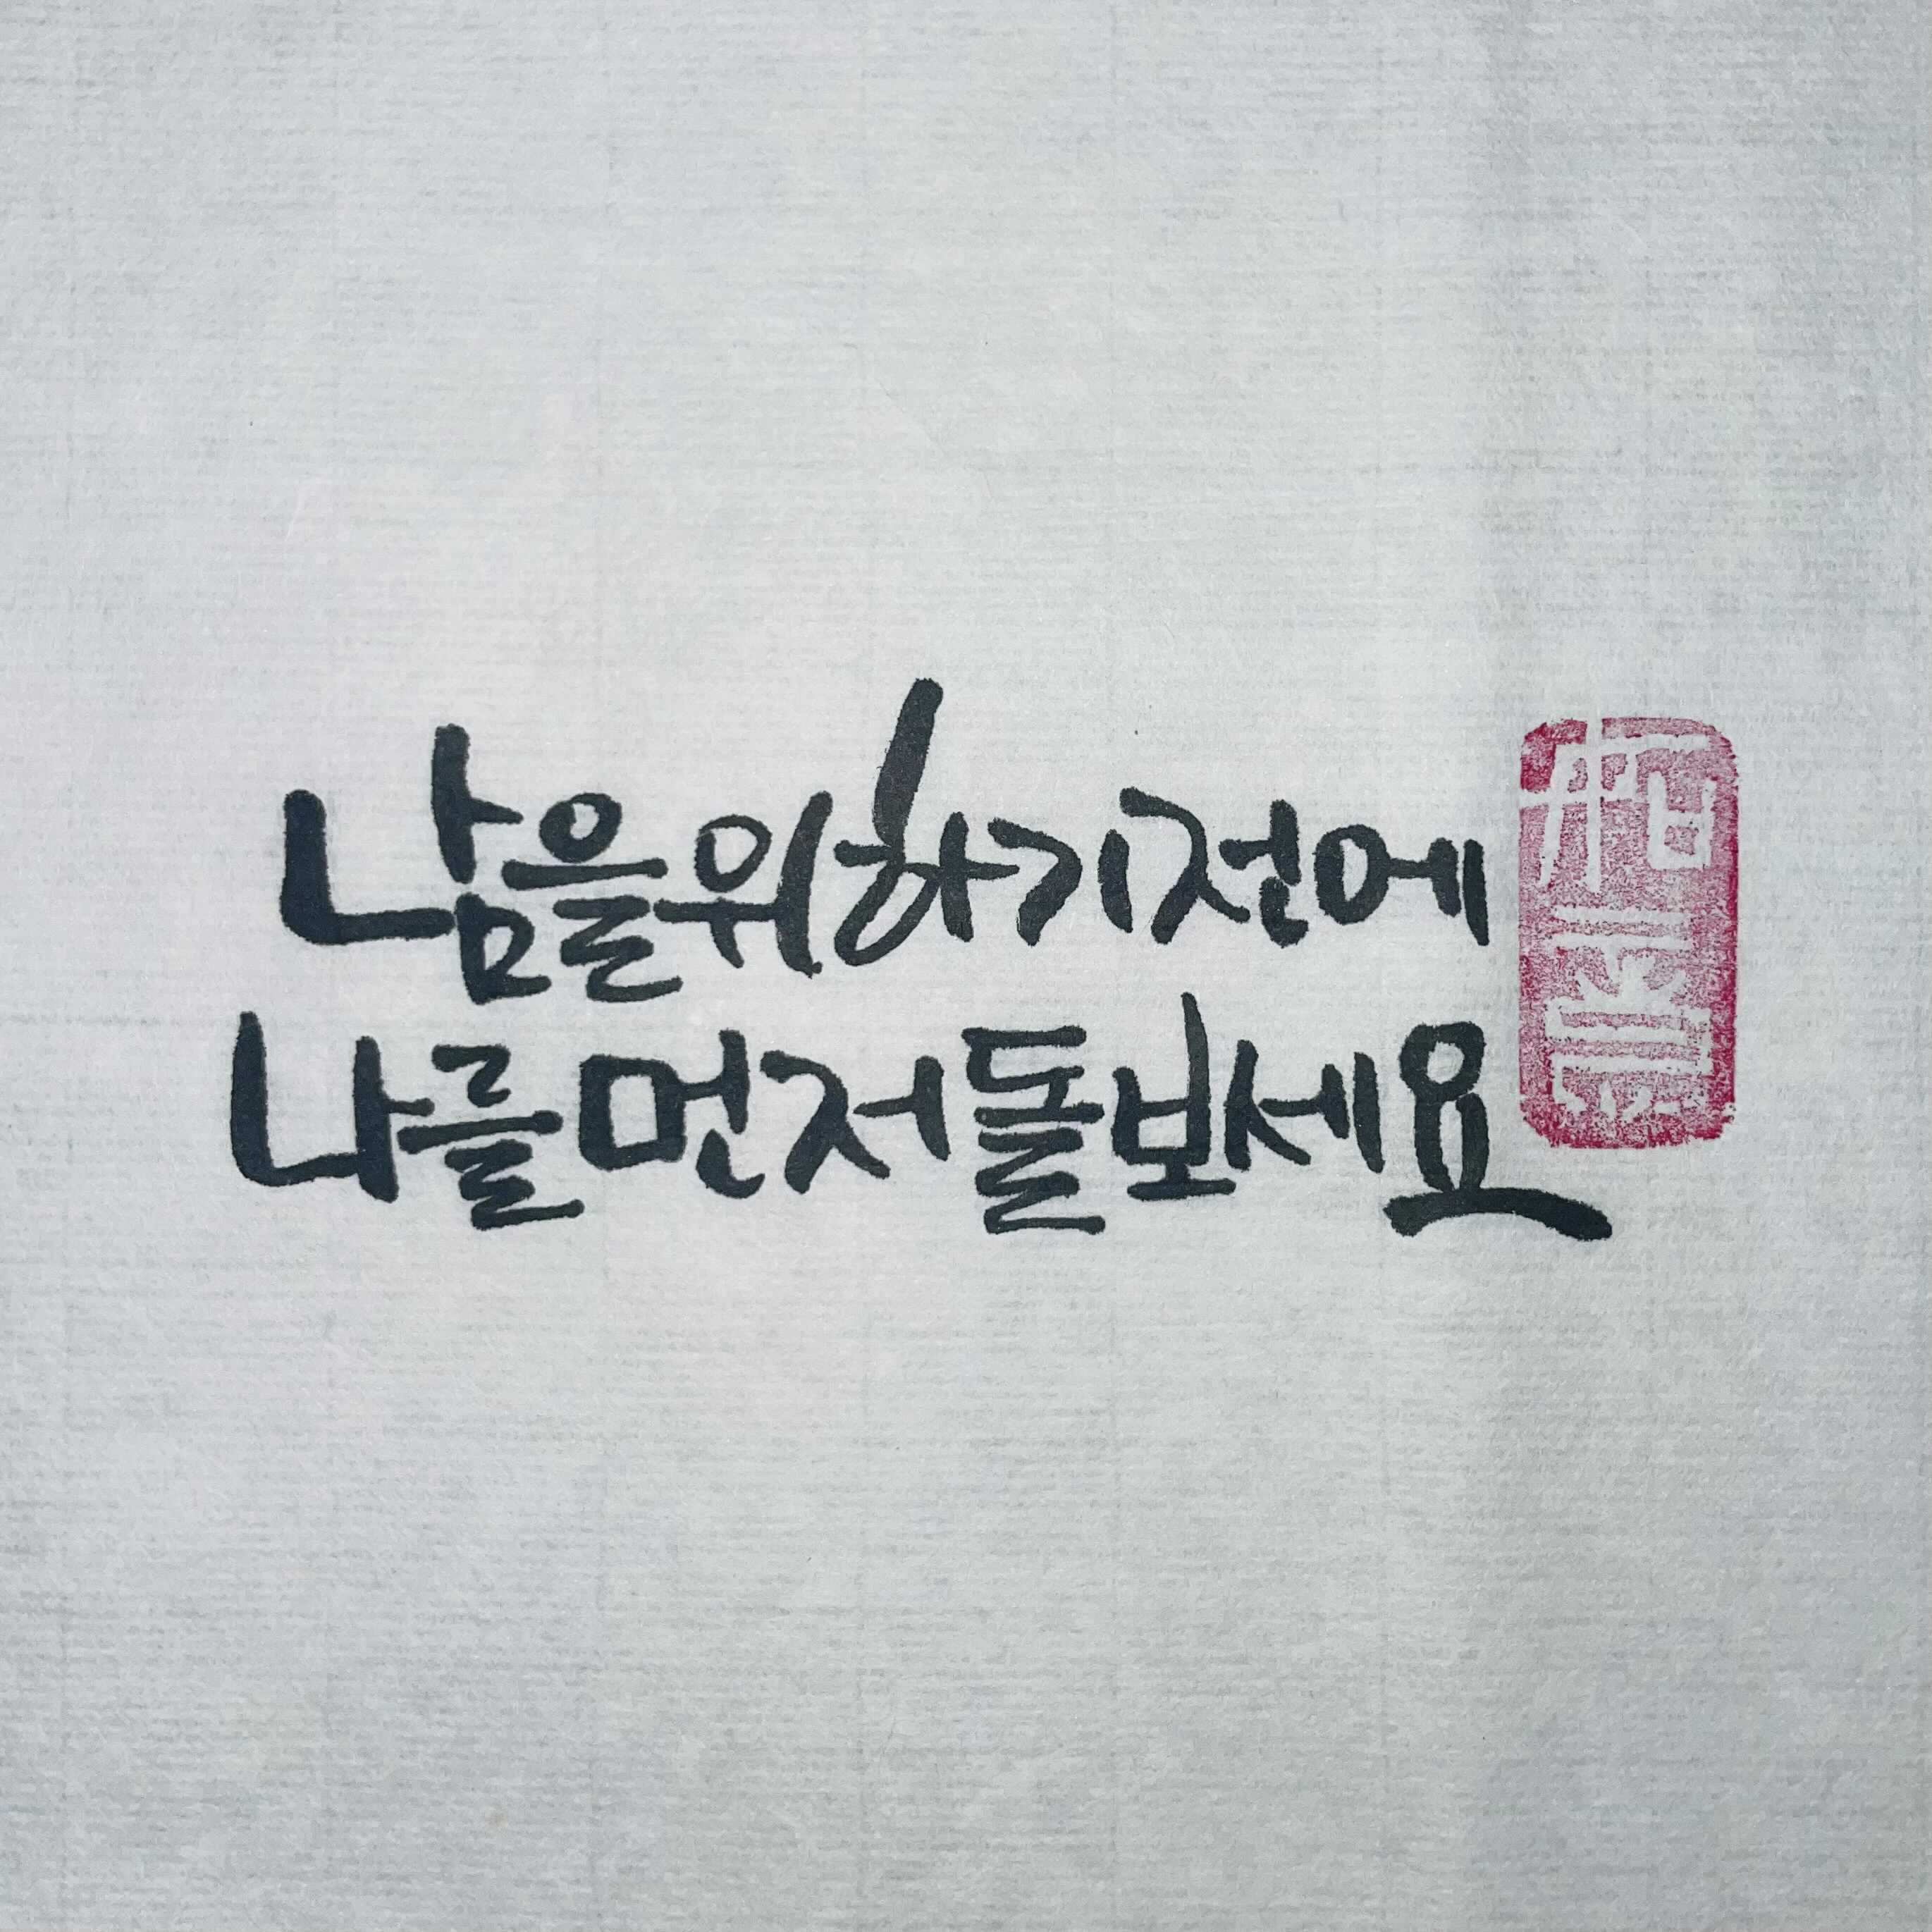 남을위하기전에
나를먼저돌보세요